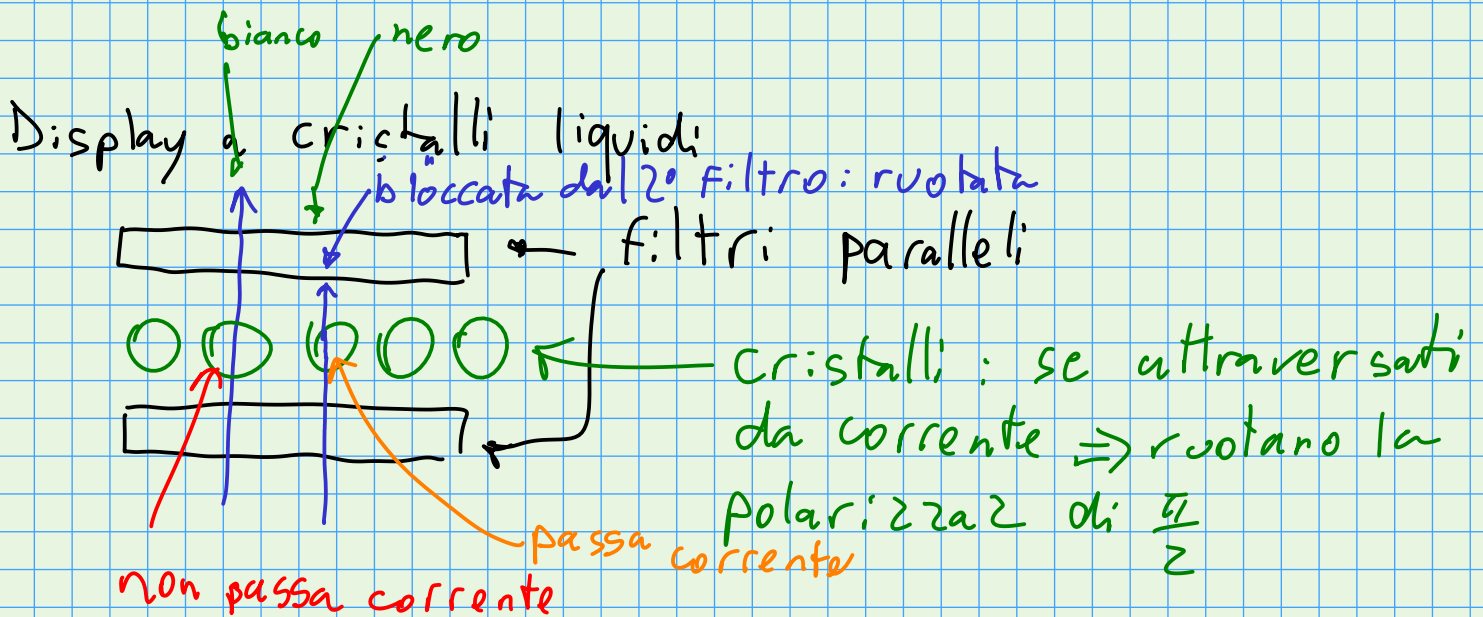 bianco
nero
Display a cristalli liquidi
bloccata dal 2° filtro: ruotata
filtri paralleli
cristalli: se attraversati
da corrente ⇒ ruotano la
polarizzaz di π/2
passa corrente
non passa corrente